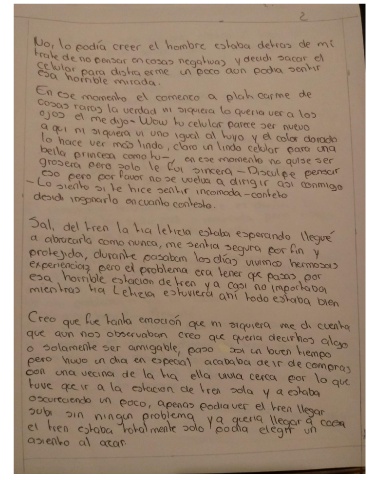 2
No, lo podía creer el hombre estaba detras de mí
trate de no pensar en cosas negativas y decidi sacar el
celular para distraerme un poco aun podia sentir
esa horrible mirada.
En ese momento el comenco a platicarme de
cosas raras la verdad ni siquiera lo queria ver a los
ojos el me dijo - Wow tu celular parece ser nuevo
a qui ni siquiera vi uno igual al tuyo y el color dorado
lo hace ver mas lindo, claro un lindo celular para una
bella princesa como tu -, en ese momento no quise ser
grosera pero solo le fui sincera - Disculpe pensar
eso pero por favor no se vuelva a dirigir asi conmigo
- Lo siento si te hice sentir incomoda - conteto
desidi ignorarlo en cuanto contesto.
Sali, del tren la tia leticia estaba esperando llegué
a abrazarla como nunca, me sentia segura por fin y
protejida, durante pasaban los días vivimos hermosas
experiencias pero el problema era tener que pasar por
esa horrible estacion de tren ya casi no importaba
mientras tia Leticia estuviera ahí todo estaba bien
Creo que fue tanta emoción que ni siquiera me di cuenta
que aun nos observaban creo que queria decirnos algo
o solamente ser amigable, paso asi un buen tiempo
pero hubo un dia en especial acababa de ir de compras
con una vecina de la tia ella vivia cerca por lo que
tuve que ir a la estacion de tren sola y a estaba
oscureciendo un poco, apenas podia ver el tren llegar
subi sin ningun problema ya queria llegar a casa
el tren estaba totalmente solo podia elegir un
asiento al azar